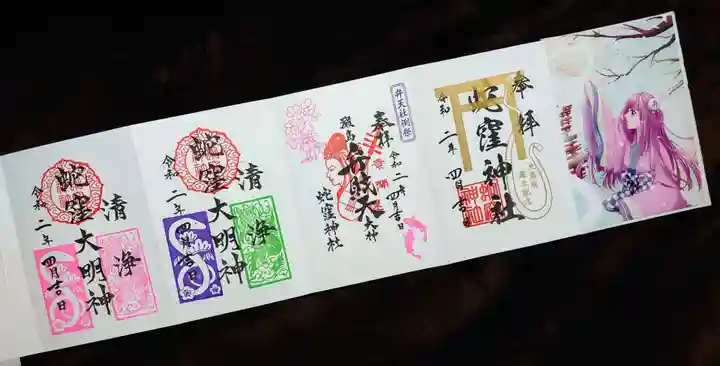 奉拝
蛇窪神社
令和二年四月吉日
弁天社例祭
奉拝
厳島弁財天
大神
令和二年四月吉日
蛇窪神社
蛇窪
清
浄
大明神
令和二年四月吉日
蛇窪
清
浄
大明神
令和二年四月吉日